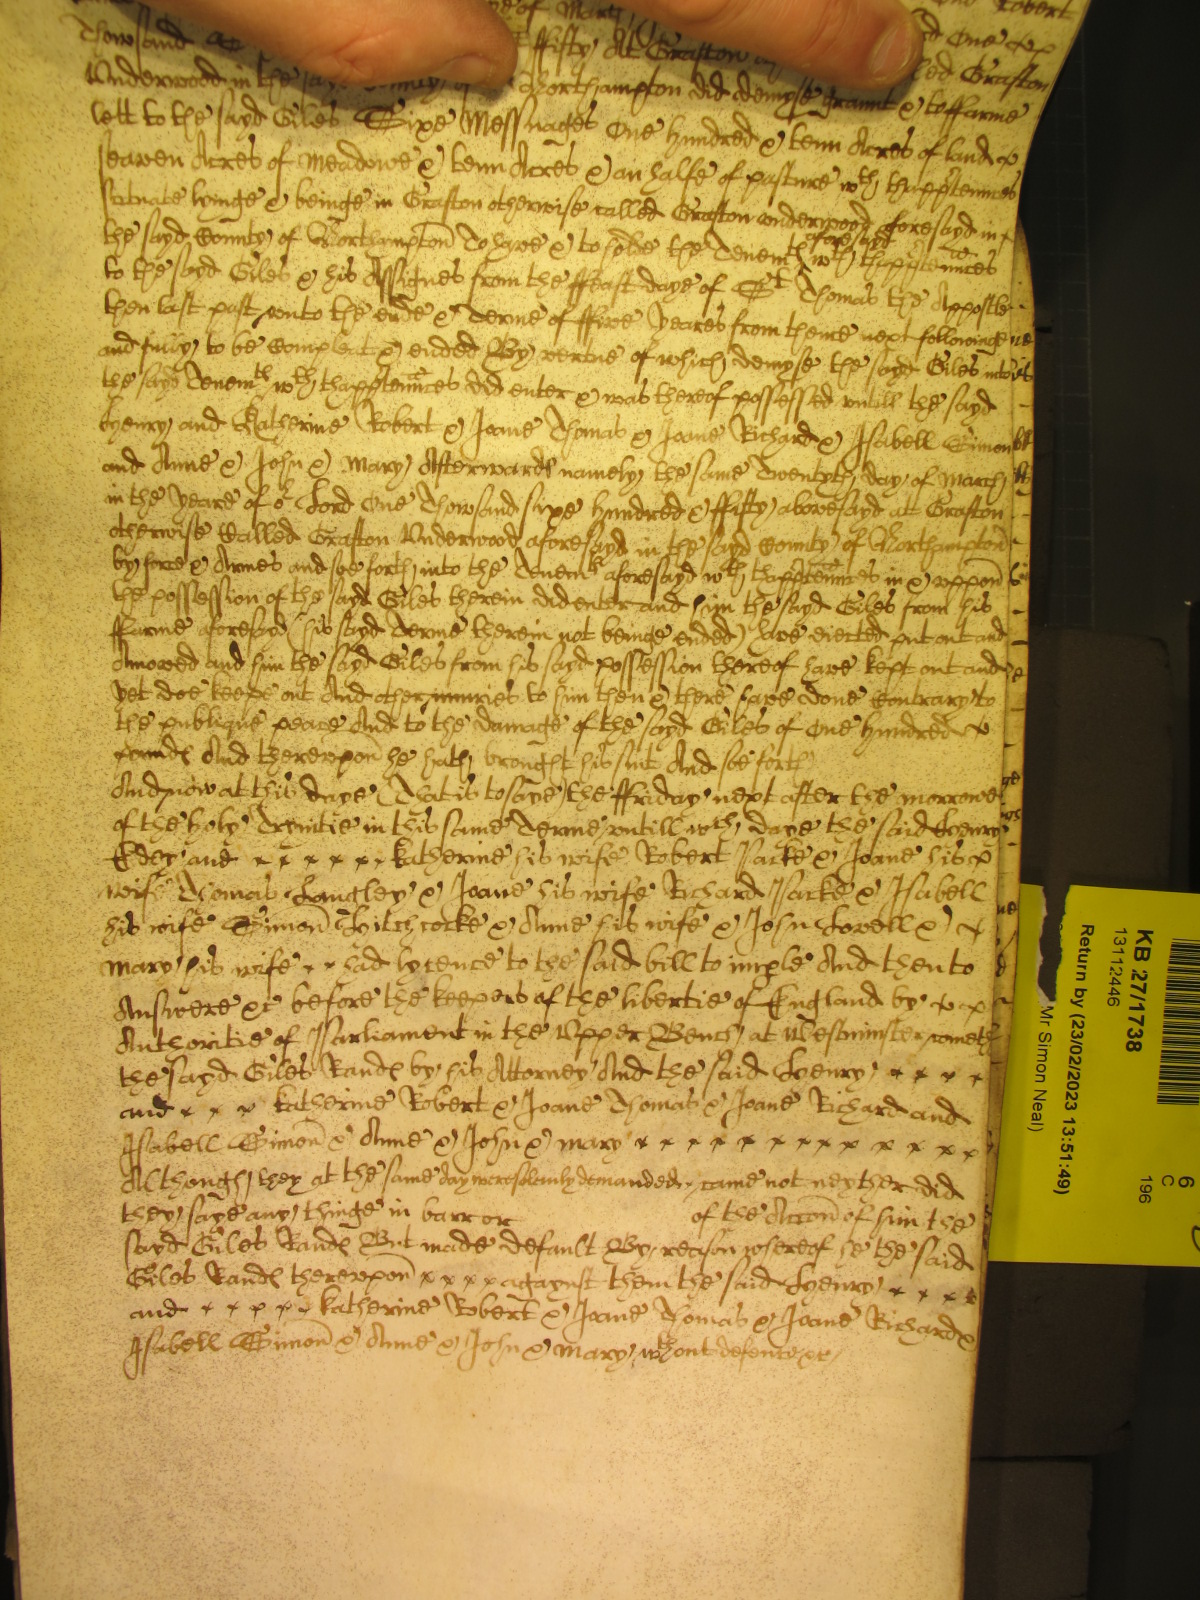 daye of March Robert
Thowsand ffifty At Grafton One
Underwood in the sayd County of Northampton did demyse graunt & to ffarme
lett to the sayd Giles Sixe Messuages One hundred & tenn Acres of land &
seaven Acres of Meadowe & tenn Acres & an halfe of pasture wth thapptennces
scituate lyinge & beinge in Grafton otherwise called Grafton underwood aforesayd in
the sayd County of Northampton To have & to holde the Tenemth aforesayd wth thapptennces
to the sayd Giles & his Assignes from the ffeast daye of St Thomas the Appostle
then last past unto the ende & Terme of ffive yeares from thence next followinge
and fully to be compleat & ended By vertue of which demyse the sayd Giles into
the sayd Tenemth wth thapptennces did enter & was thereof possessed untill the sayd
Henry and Katherine Robert & Joane Thomas & Joane Richard & Isabell Simon
and Anne & John & Mary Afterwards namely the same Twentyth day of March
in the yeare of or Lord One Thowsand sixe hundred & ffifty abovesayd at Grafton
otherwise Called Grafton Underwood aforesayd in the sayd County of Northampton
by force & Armes and soe forth into the Tenemth aforesayd wth thapptennces in & uppon
the possession of the sayd Giles therein did enter and him the sayd Giles from his
ffarme aforesayd (his sayd Terme therein not beinge ended) have eiected put out and
Amoved and him the sayd Giles from his sayd possession thereof have kept out and
yet doe keepe out And other iniuries to him then & there have done Contrary to
the publique peace And to the damage of the sayd Giles of One hundred &
pounds And thereuppon he hath brought his suit And soe forth
And now at this daye (That is to saye) the ffriday next after the morrowe
of the holy Trinitie in this same Terme untill wch daye the said Henry
Edey and x x x x x x Katherine his wife Robert Sarke & Joane his
wife Thomas Langley & Joane his wife Richard Sarke & Isabell
his wife Simon Hitchcocke & Anne his wife & John Lovell &
Mary his wife x x had lycence to the said bill to imple And then to
Answere &c before the keepers of the libertie of England by
Authoritie of Parliament in the Upper Bench at Westminster cometh
the sayd Giles Rands by his Attorney And the said Henry x x x x
and x x x Katherine Robert & Joane Thomas & Joane Richard and
Isabell Simon & Anne & John & Mary x x x x x x x x x x x x
Although they at the same day were solemly demanded came not neyther did
they saye any thinge in barr or of the Accon of him the
sayd Giles Rands But made default By reason whereof he the said
Giles Rands thereuppon x x x x agaynst them the said Henry x x x x
and x x x x x Katherine Robert & Joane Thomas & Joane Richard &
Isabell Simon & Anne & John & Mary wthout defence &c
KB 27/1738
13112446
Return by (23/02/2023 13:51:49)
Mr Simon Neal)
6
C
196